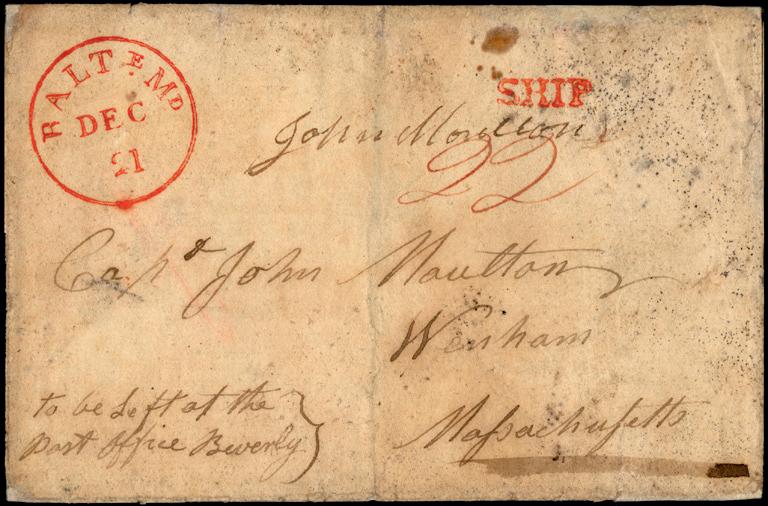 BALT.E MD
DEC
21
SHIP
John Moulton
22
Capt John Moulton
Wenham
Massachusetts
to be Left at the
Post Office Beverly